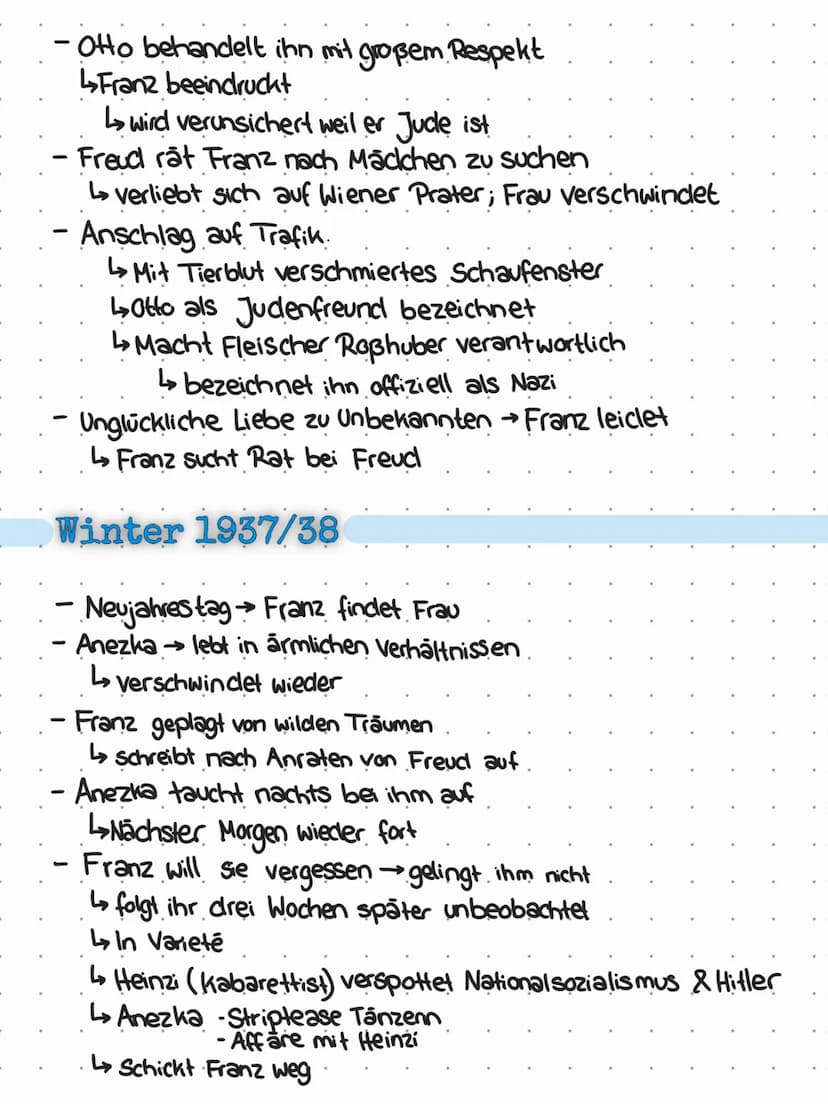 - Otto behandelt ihn mit großem Respekt
↳Franz beeindruckt
↳wird verunsichert weil er Jude ist
- Freud rät Franz nach Mädchen zu suchen
↳verliebt sich auf Wiener Prater; Frau verschwindet
- Anschlag auf Trafik
↳Mit Tierblut verschmiertes Schaufenster
↳Otto als Judenfreund bezeichnet
↳Macht Fleischer Roßhuber verantwortlich
↳bezeichnet ihn offiziell als Nazi
- Unglückliche Liebe zu Unbekannten → Franz leidet
↳Franz sucht Rat bei Freud
Winter 1937/38
- Neujahrestag → Franz findet Frau
- Anezka → lebt in ärmlichen Verhältnissen
↳verschwindet wieder
- Franz geplagt von wilden Träumen
↳schreibt nach Anraten von Freud auf
- Anezka taucht nachts bei ihm auf
↳Nächster Morgen wieder fort
- Franz will sie vergessen → gelingt ihm nicht
↳folgt ihr drei Wochen später unbeobachtet
↳In Varieté
↳Heinzi (Kabarettist) verspottet Nationalsozialismus & Hitler
↳Anezka - Striptease Tänzerin
- Affäre mit Heinzi
↳Schickt Franz weg